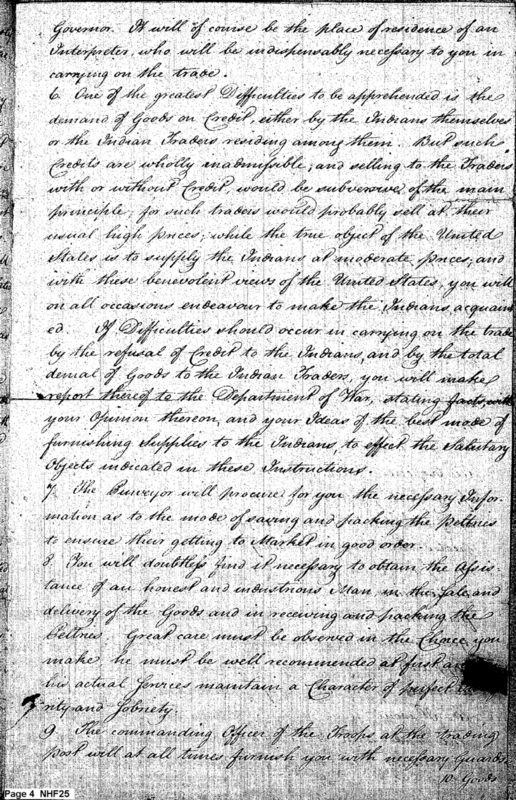 Governor. It will of course be the place of residence of an
Interpreter, who will be indispensably necessary to you in
carrying on the trade.
6. One of the greatest Difficulties to be apprehended is the
demand of Goods on Credit, either by the Indians themselves
or the Indian Traders residing among them. But such
Credits are wholly inadmissible, and selling to the Traders
with or without Credit, would be subversive of the main
principle, for such traders would probably sell at their
usual high prices; while the true object of the United
States is to supply the Indians at moderate prices; and
with these benevolent views of the United States, you will
on all occasions endeavour to make the Indians acquain
ed. If Difficulties should occur in carrying on the trade
by the refusal of Credit to the Indians, and by the total
denial of Goods to the Indian Traders, you will make
report thereof to the Department of War, stating facts, with
your Opinion thereon, and your Ideas of the best mode of
furnishing Supplies to the Indians, to effect the Salutary
Objects indicated in these Instructions.
7. The Purveyor will procure for you the necessary Infor-
mation as to the mode of saving and packing the Peltries
to ensure their getting to Market in good order.
8. You will doubtless find it necessary to obtain the Assis-
tance of an honest and industrious Man in the Sale and
delivery of the Goods and in receiving and packing the
Peltries. Great care must be observed in the Choice you
make, he must be well recommended at first
his actual Services maintain a Character of perfect
rity and Sobriety.
9. The commanding Officer of the Troops at the trading
post will at all times furnish you with necessary guards
10. Goods
Page 4 NHF25